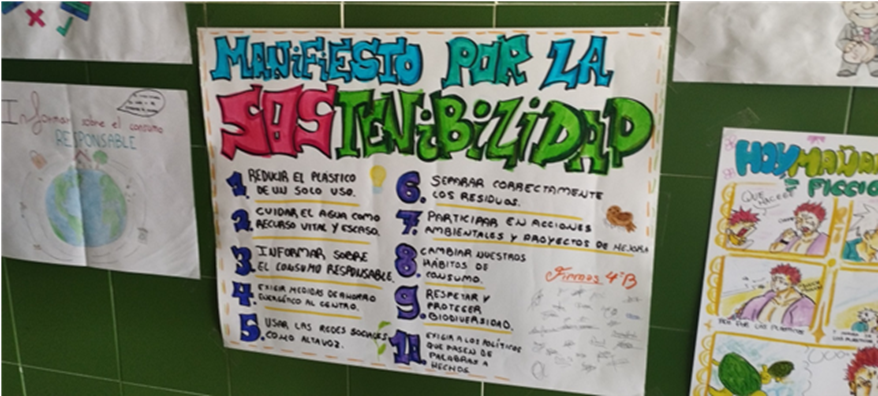 Informar sobre el consumo
RESPONSABLE
MANIFIESTO POR LA
SOSTENIBILIDAD
1. REDUCIR EL PLÁSTICO
DE UN SOLO USO.
2. CUIDAR EL AGUA COMO
RECURSO VITAL Y ESCASO.
3. INFORMAR SOBRE
EL CONSUMO RESPONSABLE.
4. EXIGIR MEDIDAS DE AHORRO
ENERGÉTICO AL CENTRO.
5. USAR LAS REDES SOCIALES
COMO ALTAVOZ.
6. SEPARAR CORRECTAMENTE
LOS RESIDUOS.
7. PARTICIPAR EN ACCIONES
AMBIENTALES Y PROYECTOS DE MEJORA
8. CAMBIAR NUESTROS
HÁBITOS DE
CONSUMO.
9. RESPETAR Y
PROTEGER
BIODIVERSIDAD.
EXIGIR A LOS POLÍTICOS
QUE PASEN DE
PALABRAS A
HECHOS
Firmas 4ºB
HOY MAÑA
FICCIO
QUE
HACES?